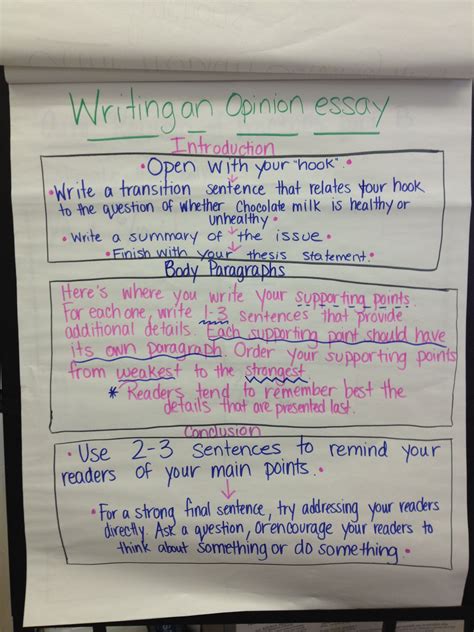 Writing an Opinion essay
Introduction
• Open with your "hook" •
• Write a transition sentence that relates your hook
to the question of whether Chocolate milk is healthy or
unhealthy •
• Write a summary of the issue •
• Finish with your thesis statement •
Body Paragraphs
Here's where you write your supporting points.
For each one, write 1-3 sentences that provide
additional details. Each supporting point should have
its own paragraph. Order your supporting points
from weakest to the strongest.
* Readers tend to remember best the
details that are presented last.
Conclusion
• Use 2-3 sentences to remind your
readers of your main points. •
• For a strong final sentence, try addressing your readers
directly. Ask a question, or encourage your readers to
think about something or do something. •